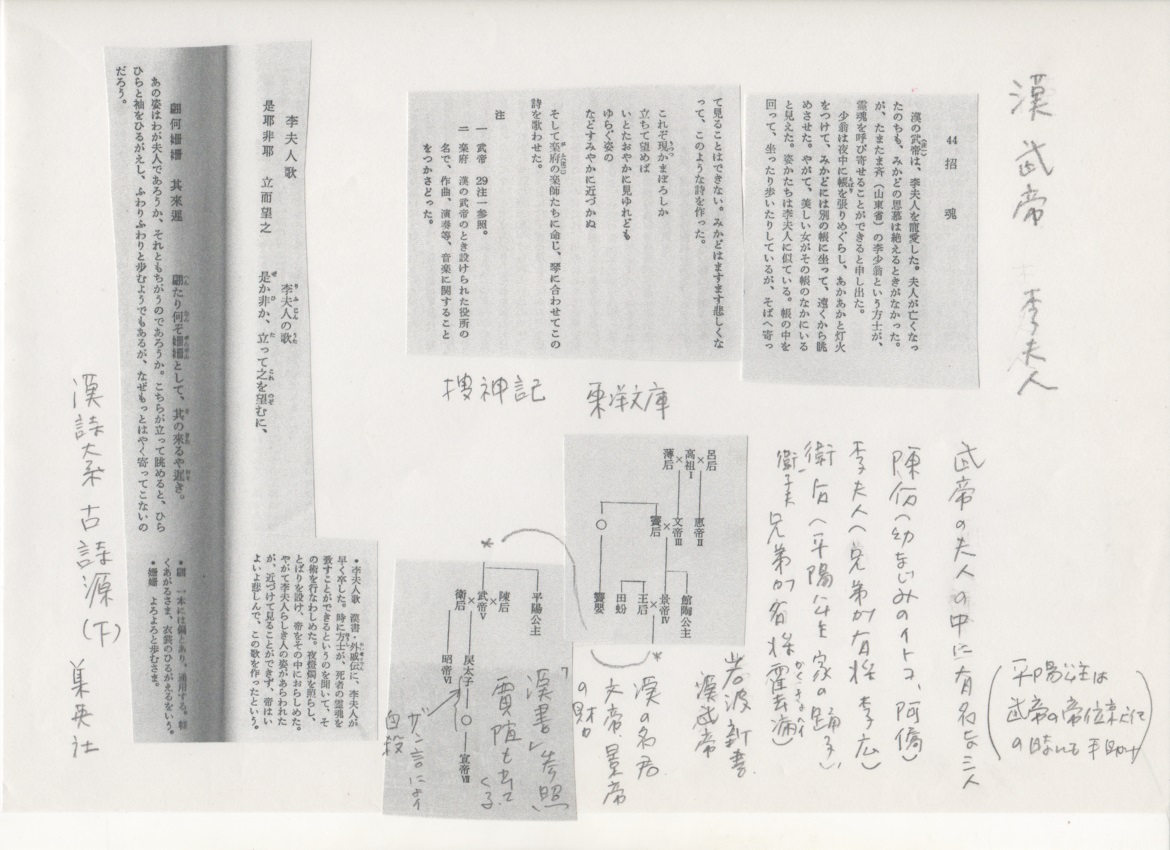 漢 武帝 李夫人
44 招 魂
漢の武帝は、李夫人を寵愛した。夫人が亡くなっ
たのちも、みかどの思慕は絶えるときがなかった。
が、たまたま斉(山東省)の李少翁という方士が、
霊魂を呼び寄せることができると申し出た。
少翁は夜中に帳を張りめぐらし、あかあかと灯火
をつけて、みかどには別の帳に坐って、遠くから眺
めさせた。やがて、美しい女がその帳のなかにいる
と見えた。姿かたちは李夫人に似ている。帳の中を
回って、坐ったり歩いたりしているが、そばへ寄っ
て見ることはできない。みかどはますます悲しくな
って、このような詩を作った。
これぞ現かまぼろしか
立ちて望めば
いとたおやかに見ゆれども
ゆらぐ姿の
などすみやかに近づかぬ
そして楽府の楽師たちに命じ、琴に合わせてこの
詩を歌わせた。
注
一 武帝 29注一参照。
二 楽府 漢の武帝のとき設けられた役所の
名で、作曲、演奏等、音楽に関すること
をつかさどった。
捜神記 東洋文庫
李夫人歌
是耶非耶 立而望之
翩何姍姍 其來遲
李夫人の歌
是か非か、立って之を望むに、
翩たり何ぞ姍姍として、其の来るや遅き。
あの姿はわが夫人であろうか、それともちがうのであろうか。こちらが立って眺めると、ひら
ひらと袖をひるがえし、ふわりふわりと歩むようでもあるが、なぜもっとはやく寄ってこないの
だろう。
・李夫人歌 漢書・外戚伝に、李夫人が
早く卒した。時に方士が、死者の霊魂を
致すことができるというのを聞いて、そ
の術を行なわしめた。夜燈燭を照らし、
とばりを設け、帝をその中におらしめた。
やがて李夫人らしき人の姿があらわれた
が、近づけて見ることができず、帝はい
よいよ悲しんで、この歌を作ったという。
・翩 一本には偏とあり。通用する。軽
くあがるさま、衣裳のひるがえるをいう。
・姍姍 よろよろと歩むさま。
漢詩大系 古詩源(下) 集英社
(平陽公主は
武帝の帝位
の時にも手助け)
武帝の夫人の中に有名な三人
陳后(幼なじみのイトコ、阿僑)
李夫人(兄弟が有将 李広)
衛后(平陽公主家の踊子)
衛子夫 兄弟が名将霍去病)
呂后
×
高祖I
×
薄后
恵帝II
文帝III
×
竇后
○
館陶公主
景帝IV
×
王后
田蚡
竇嬰
*
*
平陽公主
陳后
×
武帝V
×
衛后
戻太子
昭帝VI
○
宣帝VII
岩波新書
漢武帝
漢の名君
文帝、景帝
の財
「漢書」参照
ザン言により
自殺